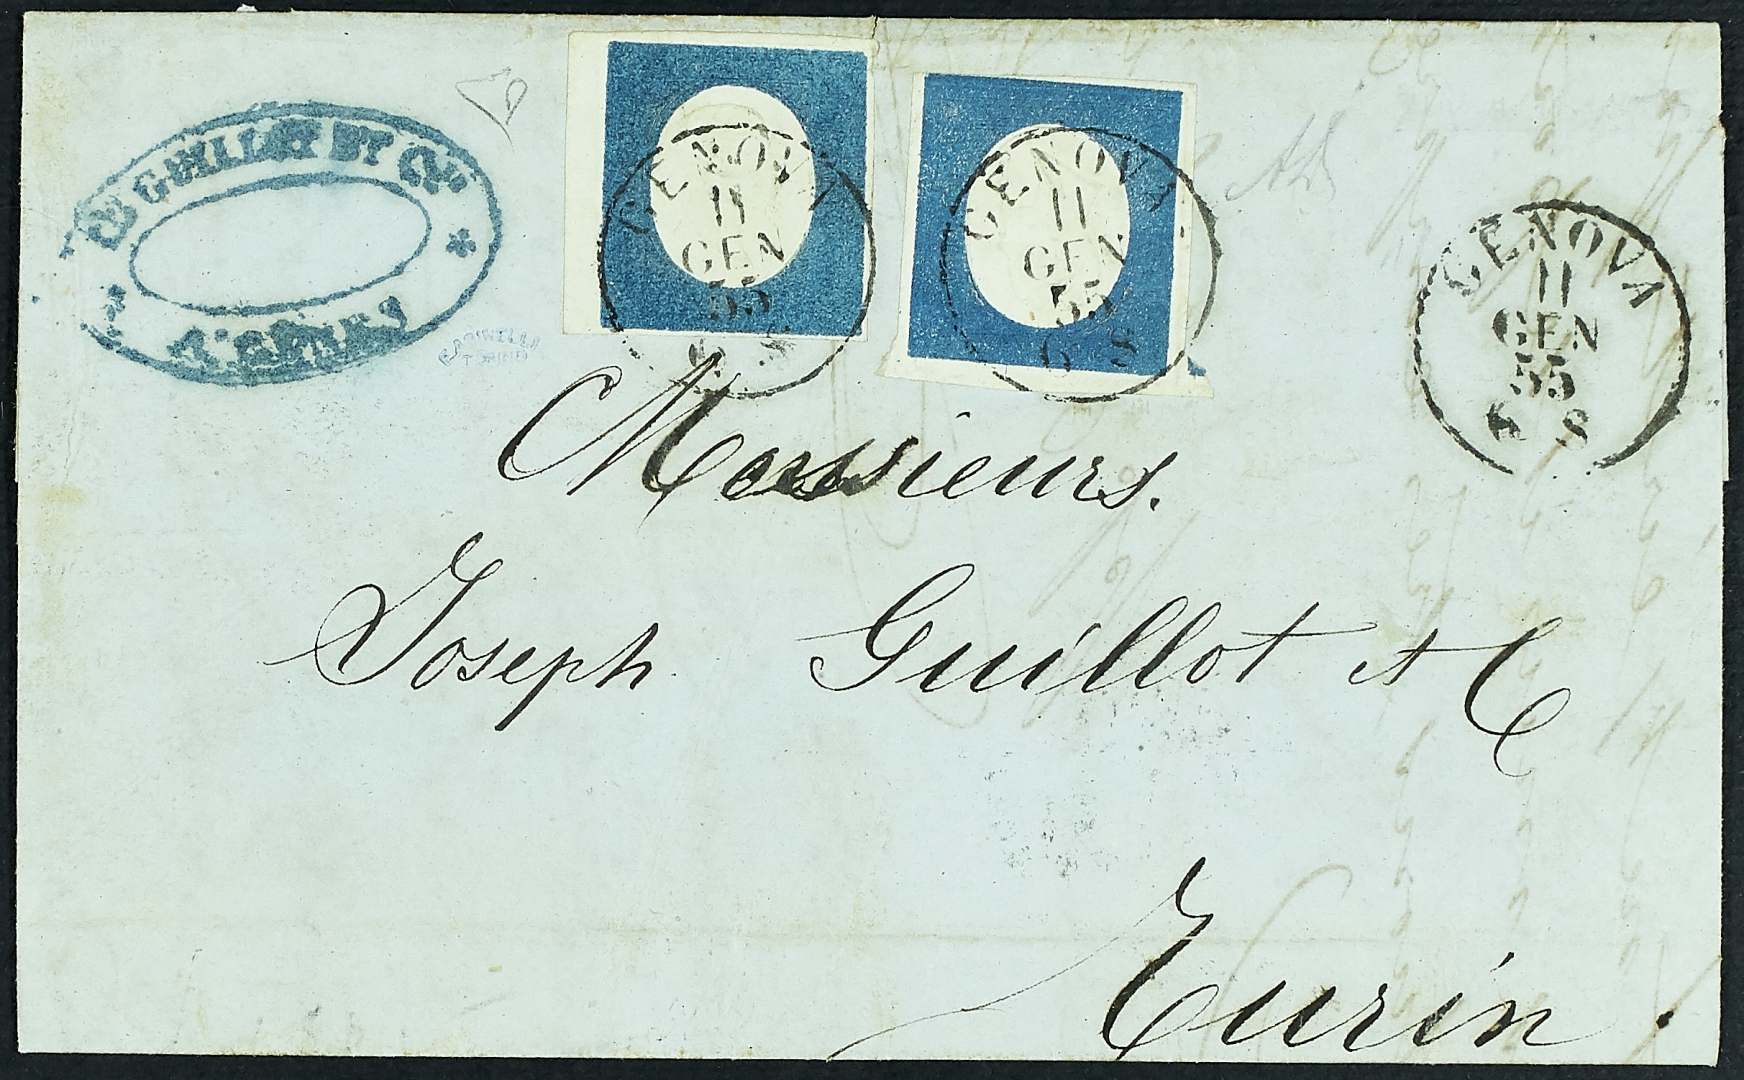 GUILLOT ET Cie
A GENES
GENOVA
11
GEN
55
6 S
GENOVA
11
GEN
55
6 S
GENOVA
11
GEN
55
6 S
Messieurs.
Joseph Guillot et C
Turin.